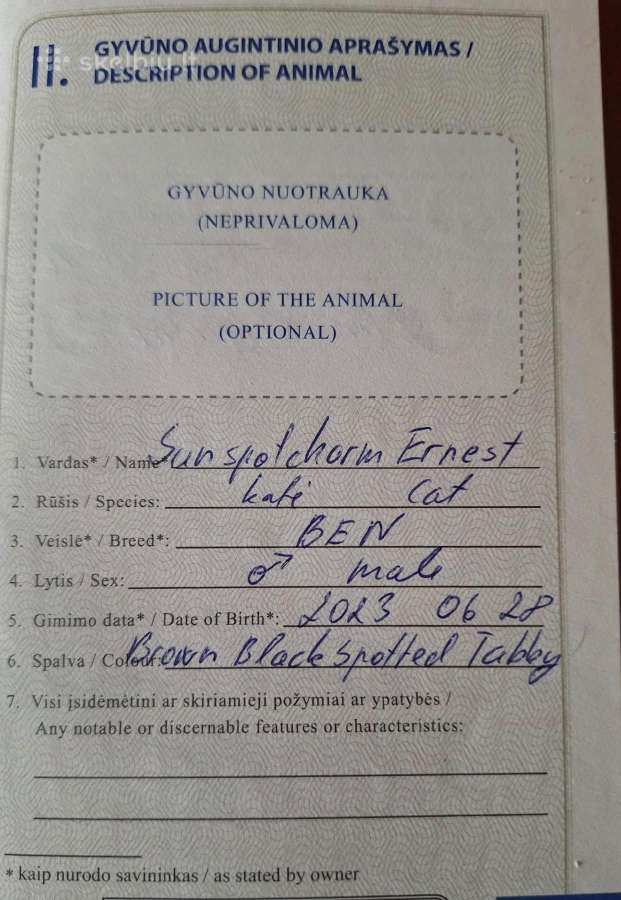 II. GYVŪNO AUGINTINIO APRAŠYMAS /
DESCRIPTION OF ANIMAL
skelbiu.lt
GYVŪNO NUOTRAUKA
(NEPRIVALOMA)
PICTURE OF THE ANIMAL
(OPTIONAL)
1. Vardas* / Name*: Sunspotcharm Ernest
2. Rūšis / Species: katė cat
3. Veislė* / Breed*: BEN
4. Lytis / Sex: ♂ male
5. Gimimo data* / Date of Birth*: 2023 06 28
6. Spalva / Colour: Brown Black Spotted Tabby
7. Visi įsidėmėtini ar skiriamieji požymiai ar ypatybės /
Any notable or discernable features or characteristics:
* kaip nurodo savininkas / as stated by owner